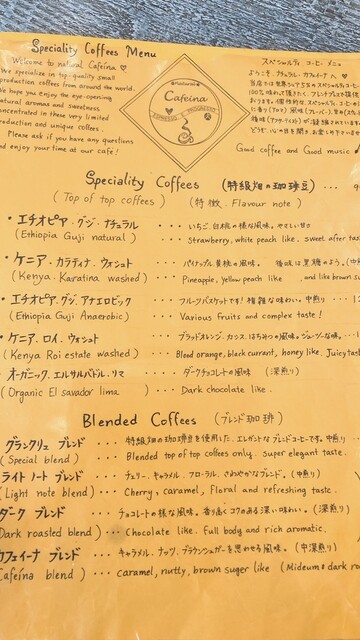 Speciality Coffees Menu
Welcome to natural Cafeína ♡
We specialize in top-quality small
production coffees from around the world.
We hope you enjoy the eye-opening
natural aromas and sweetness
concentrated in these very limited
production and unique coffees.
Please ask if you have any questions
and enjoy your time at our cafe!
natural
Cafeína
ESPRESSO E PROGRESSO
スペシャルティ コーヒー メニュー
ようこそ ナチュラル カフェイーナ へ ♡
Good coffee and Good music
Speciality Coffees (特級畑の珈琲豆) ...
(Top of top coffees) (特徴. Flavour note)
・エチオピア・グジ・ナチュラル ... いちご、白桃の様な風味。やさしい甘さ
(Ethiopia Guji natural) ... Strawberry, white peach like. sweet after
・ケニア・カラティナ・ウォシュト ... パイナップル、黄桃の風味。 後味は黒糖のよう。
(Kenya. Karatina washed) ... Pineapple, Yellow peach like and like brown
・エチオピア・グジ・アナエロビック ... フルーツバスケットです! 複雑な味わい。中煎り ...
(Ethiopia Guji Anaerobic) ... Various Fruits and complex taste!
・ケニア・ロイ・ウォシュト ... ブラッドオレンジ、カシス、はちみつの風味。ジューシーな味。
(Kenya Roi estate washed) ... Blood orange, black currant, honey like. Juicy
・オーガニック、エルサルバドル、リマ ... ダークチョコレートの風味 (深煎り)
(Organic El savador lima) .... Dark chocolate like.
Blended Coffees (ブレンド珈琲)
グランクリュ ブレンド ... 特級畑の珈琲豆を使用した、エレガントなブレンドコーヒーです。中煎り ...
(Special blend) ... Blended top of top coffees only. super elegant taste.
ライト ノート ブレンド ... チェリー、キャラメル、フローラル、さわやかなブレンド。(中煎り)
(Light note blend) ... Cherry, caramel, Floral and refreshing taste.
ダーク ブレンド ... チョコレートの様な風味。香り高くコクのある深い味わい。(深煎り)
Dark roasted blend) ... Chocolate like. Full body and rich aromatic.
カフェイーナ ブレンド ... キャラメル、ナッツ、ブラウンシュガーを思わせる風味。(中深煎り)
Cafeína blend) ... caramel, nutty, brown suger like (Mideum & dark